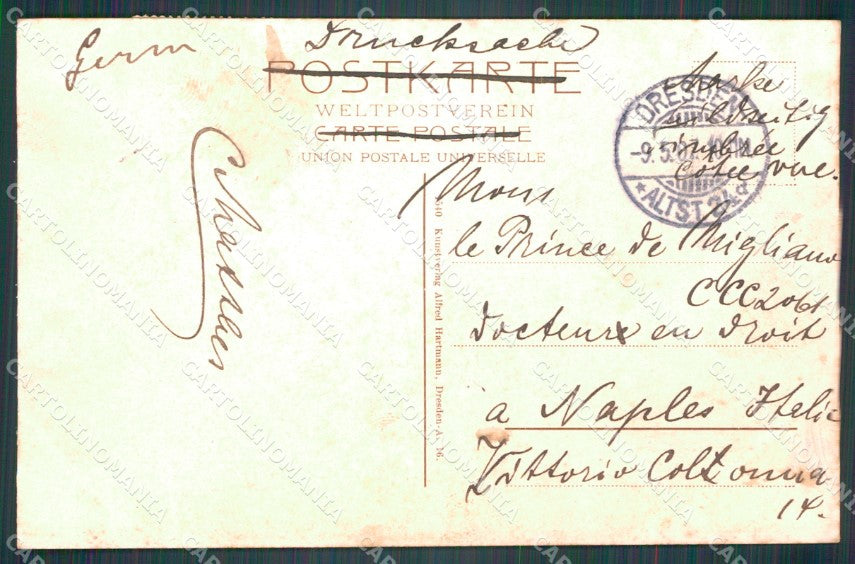 Germ
Drucksache
POSTKARTE
WELTPOSTVEREIN
CARTE POSTALE
UNION POSTALE UNIVERSELLE
Marke
umbseitig
timbrée
cotée vue.
DRESDEN
-9.5.07
* ALTST. 24 d
Mons
le Prince de Migliano
CCC2061
Docteur en droit
a Naples Italie
Vittorio Colonna
14.
Kunstverlag Alfred Hartmann, Dresden-A. 16.
CARTOLINOMANIA